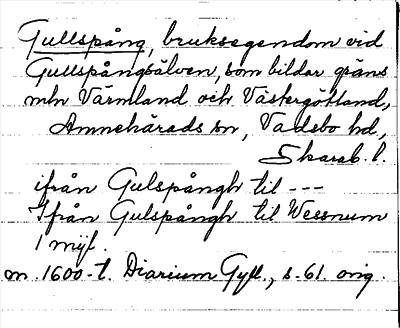 Gullspång, bruksegendom vid
Gullspångsälven, som bildar gräns
mln Värmland och Västergötland,
Amnehärads sn, Vadsbo hd,
Skarab. l.
ifrån Gulspångh til ---
Ifrån Gulspångh til Wessnum
1 mijl.
m. 1600-t. Diarium Gyll., s. 61. orig.